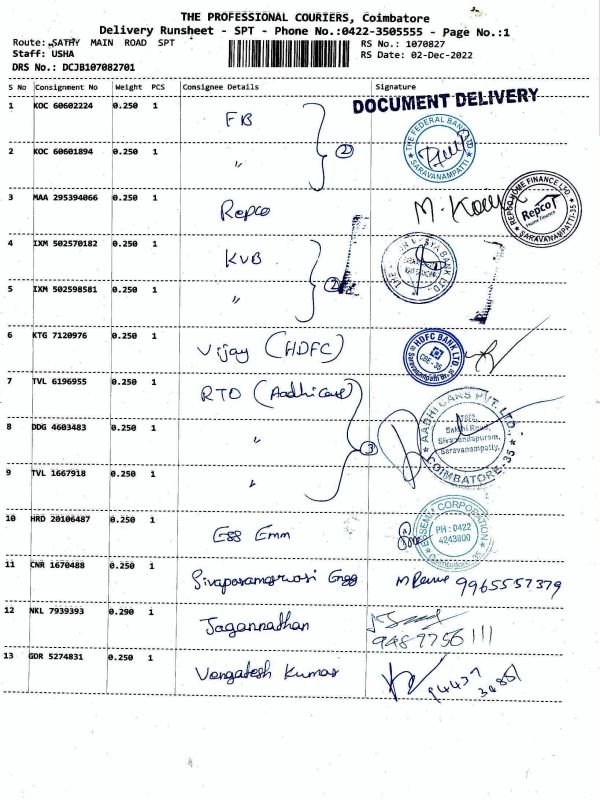 THE PROFESSIONAL COURIERS, Coimbatore
Delivery Runsheet - SPT - Phone No.:0422-3505555 - Page No.:1
Route: SATHY MAIN ROAD SPT
RS No.: 1070827
Staff: USHA
RS Date: 02-Dec-2022
DRS No.: DCJB107082701
S No Consignment No Weight PCS Consignee Details Signature
DOCUMENT DELIVERY
1 KOC 60602224 0.250 1 FB
THE FEDERAL BANK LTD SARAVANAMPATTI
2 KOC 60601894 0.250 1 〃 2
3 MAA 295394066 0.250 1 Repco M.
REPCO HOME FINANCE LTD Repco Home Finance SARAVANAMPATTI-35
4 IXM 502570182 0.250 1 KVB
5 IXM 502598581 0.250 1 〃 2
6 KTG 7120976 0.250 1 Vijay (HDFC)
HDFC BANK LTD. CBE - 35
7 TVL 6196955 0.250 1 RTO (Aadhicars)
AADHI CARS PVT. LTD.
Sathi Road,
Sivanandapuram,
Saravanampatty,
COIMBATORE-35
8 DDG 4603483 0.250 1 〃 3
9 TVL 1667918 0.250 1 〃
10 HRD 20106487 0.250 1 Ess Emm
CORPORATION
PH : 0422
4243800
Coimbatore-35
11 CNR 1670488 0.250 1 Engg 9965557379
12 NKL 7939393 0.290 1 Jagannathan
9487756111
13 GDR 5274831 0.250 1 Vengatesh Kumar
94437